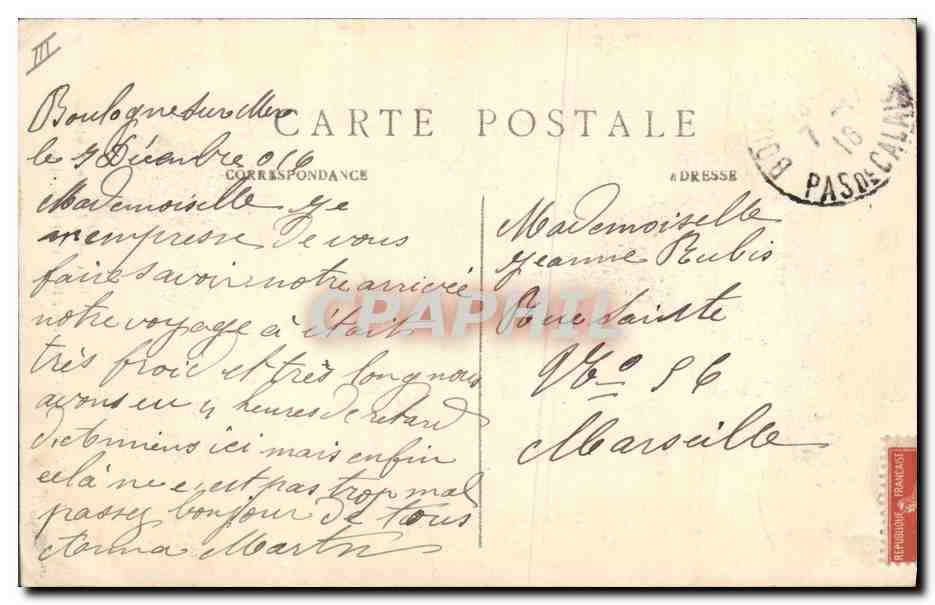 III
Boulogne sur Mer
CARTE POSTALE
le 7 Décembre 916
CORRESPONDANCE
Mademoiselle ye
m empresse de vous
faire savoir notre arrivée
notre voyage à était
très froid et très long nous
avons eu 4 heures de retard
ici mais enfin
celà ne c est pas trop mal
passez bonjour de tous
Anna Martin
ADRESSE
Mademoiselle
Jeanne Rubis
Rue Sainte
56
Marseille
7
16
BOU
PAS DE CALAIS
REPUBLIQUE FRANÇAISE
CPAPHIL